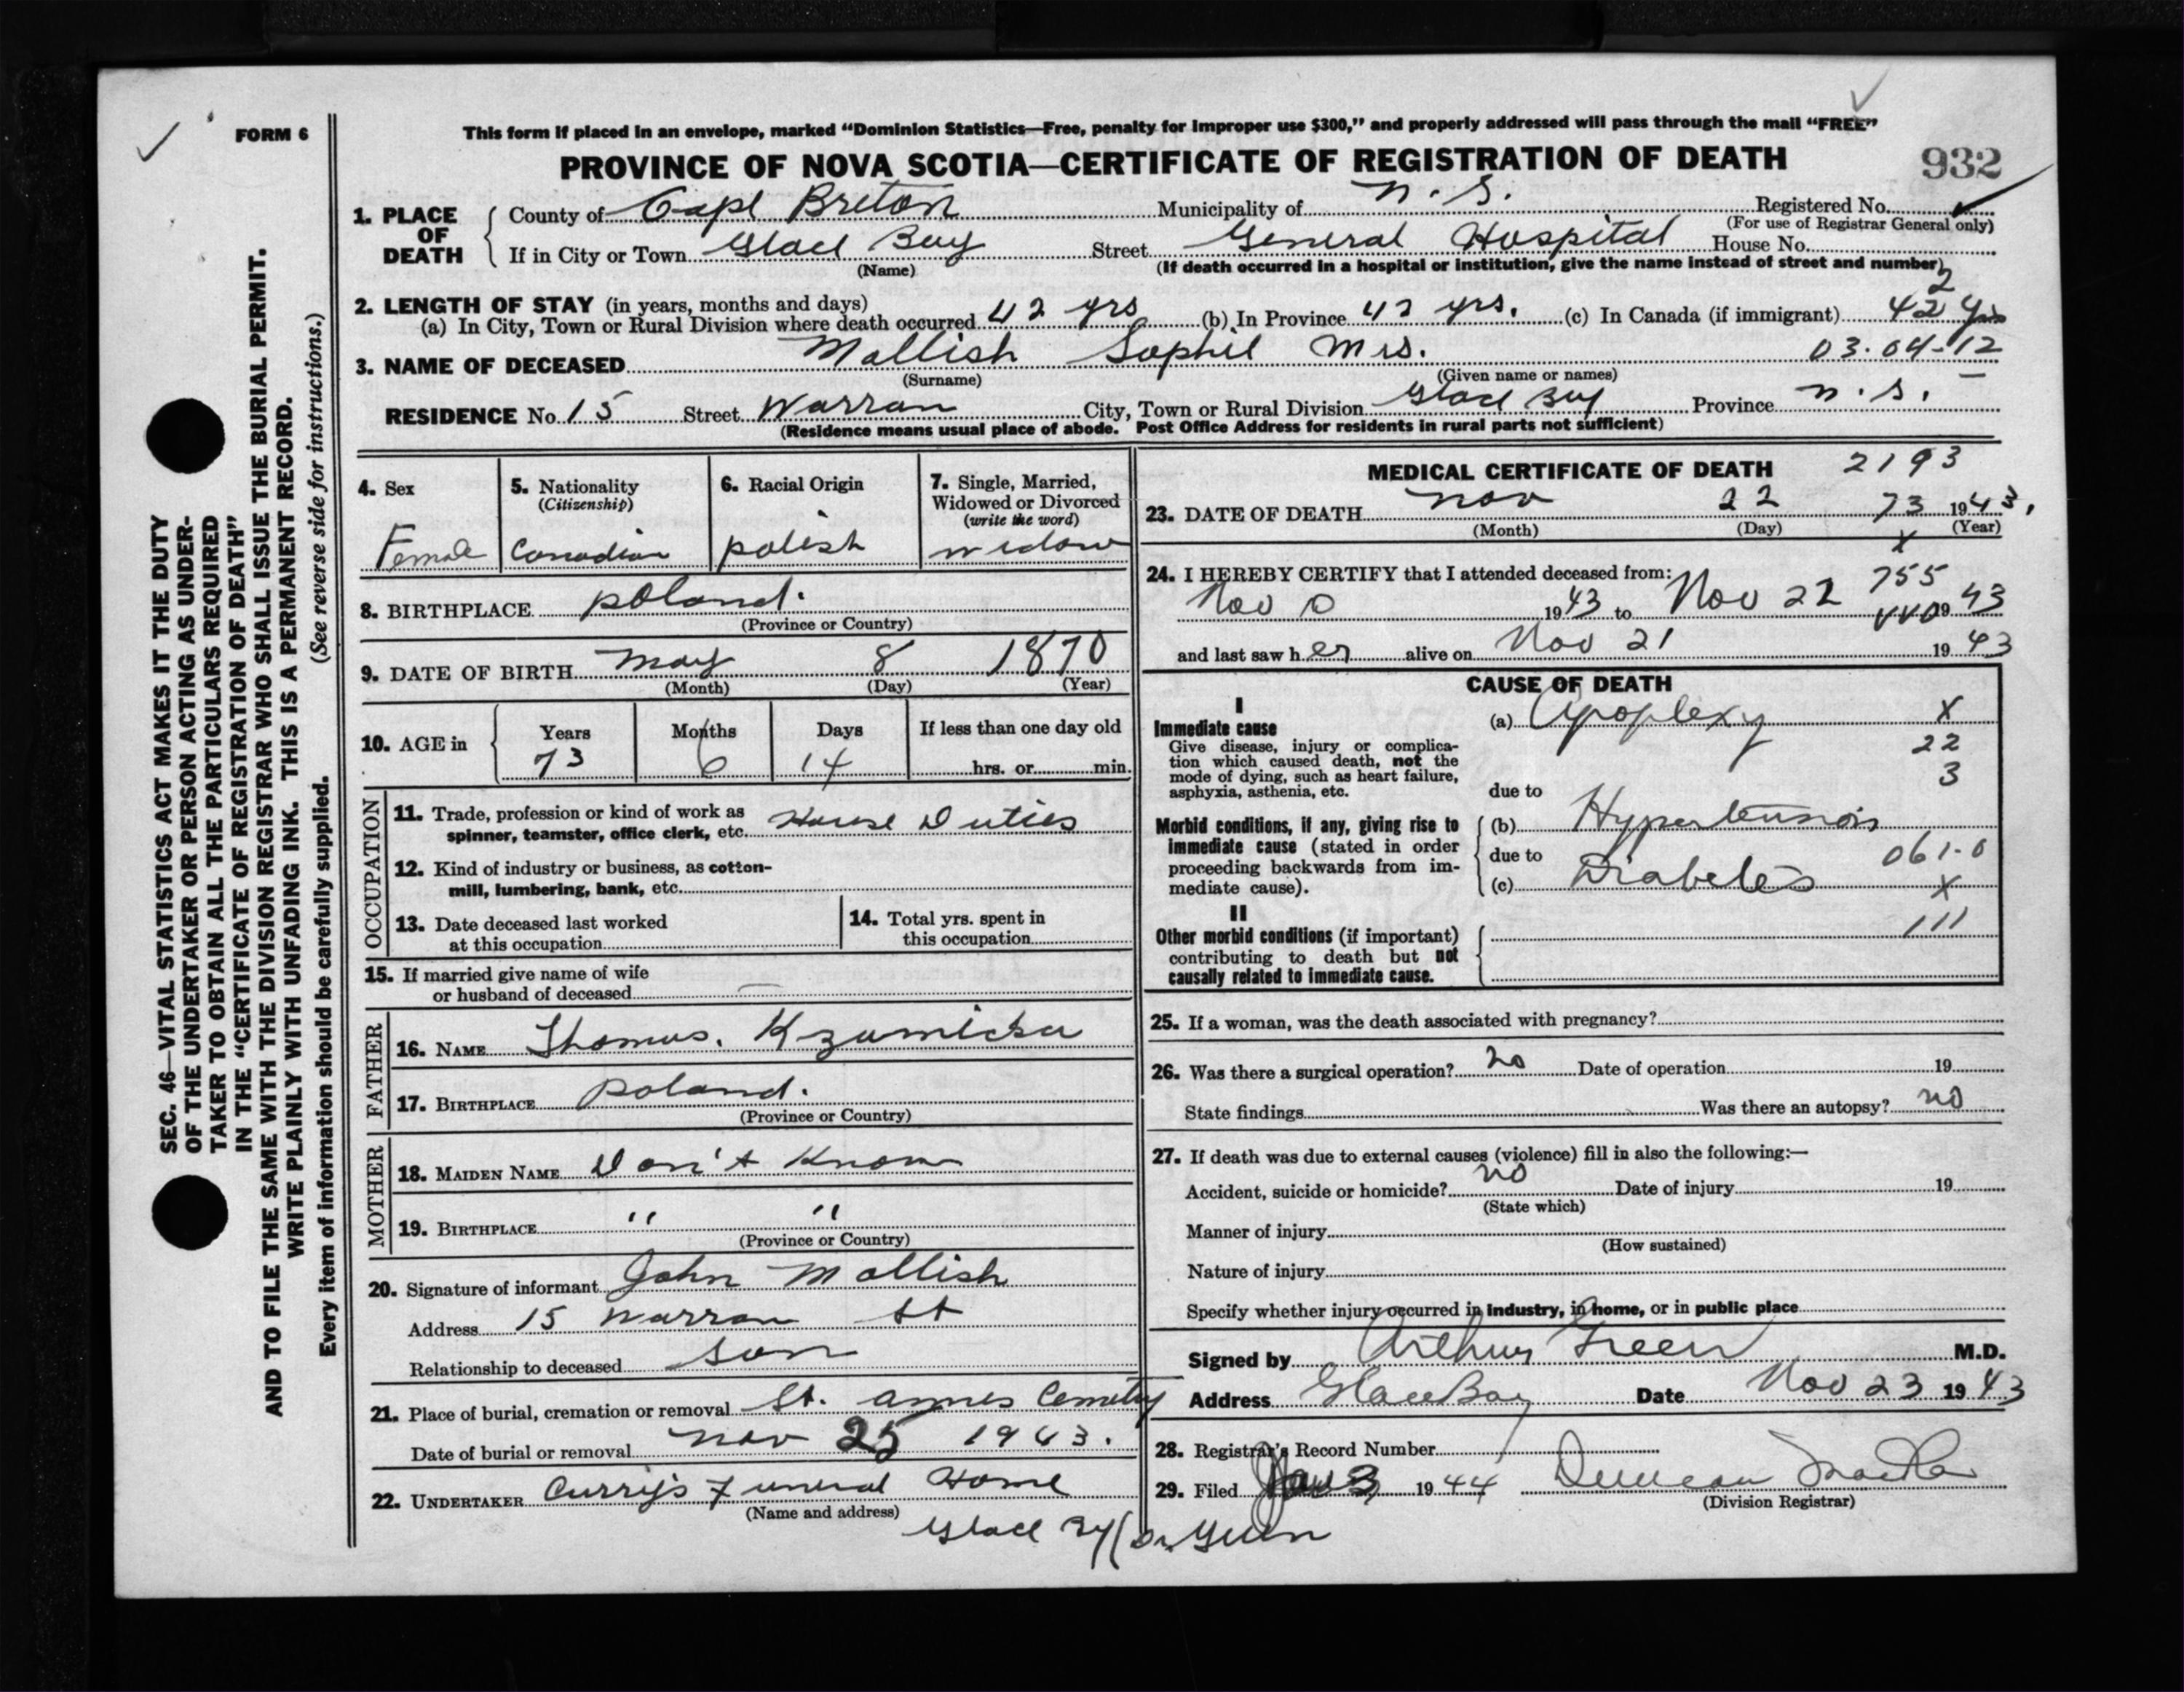 FORM 6
This form if placed in an envelope, marked “Dominion Statistics—Free, penalty for improper use $300,” and properly addressed will pass through the mail “FREE”
PROVINCE OF NOVA SCOTIA—CERTIFICATE OF REGISTRATION OF DEATH
932
1. PLACE OF DEATH
County of Cape Breton Municipality of N. S. Registered No.
(For use of Registrar General only)
If in City or Town Glace Bay Street General Hospital House No.
(Name) (If death occurred in a hospital or institution, give the name instead of street and number)
2
2. LENGTH OF STAY (in years, months and days)
(a) In City, Town or Rural Division where death occurred 42 yrs (b) In Province 42 yrs. (c) In Canada (if immigrant) 42 yrs
3. NAME OF DECEASED Mallish Sophie Mrs. 03.04-12
(Surname) (Given name or names)
RESIDENCE No. 15 Street Warran City, Town or Rural Division Glace Bay Province N. S.
(Residence means usual place of abode. Post Office Address for residents in rural parts not sufficient)
4. Sex
Female
5. Nationality
(Citizenship)
Canadian
6. Racial Origin
polish
7. Single, Married,
Widowed or Divorced
(write the word)
widow
8. BIRTHPLACE poland.
(Province or Country)
9. DATE OF BIRTH may 8 1870
(Month) (Day) (Year)
10. AGE in
Years Months Days If less than one day old
73 6 14 hrs. or min.
OCCUPATION
11. Trade, profession or kind of work as
spinner, teamster, office clerk, etc. House Duties
12. Kind of industry or business, as cotton-
mill, lumbering, bank, etc.
13. Date deceased last worked
at this occupation
14. Total yrs. spent in
this occupation
15. If married give name of wife
or husband of deceased —
FATHER
16. NAME Thomas.
17. BIRTHPLACE poland.
(Province or Country)
MOTHER
18. MAIDEN NAME Don't Know
19. BIRTHPLACE " "
(Province or Country)
20. Signature of informant John Mallish
Address 15 Warran St
Relationship to deceased Son
21. Place of burial, cremation or removal St. Annes Cemetry
Date of burial or removal Nov 25 1943.
22. UNDERTAKER Curry's Funeral Home
(Name and address)
Glace By (Dr Green
MEDICAL CERTIFICATE OF DEATH 2193
23. DATE OF DEATH Nov 22 73 1943.
(Month) (Day) (Year)
X
24. I HEREBY CERTIFY that I attended deceased from:
755
Nov 1943 to Nov 22 1943
and last saw her alive on Nov 21 1943
CAUSE OF DEATH
I
Immediate cause
Give disease, injury or complica-
tion which caused death, not the
mode of dying, such as heart failure,
asphyxia, asthenia, etc.
(a) Apoplexy X
22
3
due to
Morbid conditions, if any, giving rise to
immediate cause (stated in order
proceeding backwards from im-
mediate cause).
(b) Hypertension
due to 061-0
(c) Diabetes X
111
II
Other morbid conditions (if important)
contributing to death but not
causally related to immediate cause.
25. If a woman, was the death associated with pregnancy?
26. Was there a surgical operation? no Date of operation 19
State findings Was there an autopsy? no
27. If death was due to external causes (violence) fill in also the following:—
Accident, suicide or homicide? no Date of injury 19
(State which)
Manner of injury
(How sustained)
Nature of injury
Specify whether injury occurred in industry, in home, or in public place
Signed by Arthur Green M.D.
Address Glace Bay Date Nov 23 1943
28. Registrar's Record Number
29. Filed Jan 3 1944 Duncan
(Division Registrar)
SEC. 46—VITAL STATISTICS ACT MAKES IT THE DUTY
OF THE UNDERTAKER OR PERSON ACTING AS UNDER-
TAKER TO OBTAIN ALL THE PARTICULARS REQUIRED
IN THE “CERTIFICATE OF REGISTRATION OF DEATH”
AND TO FILE THE SAME WITH THE DIVISION REGISTRAR WHO SHALL ISSUE THE BURIAL PERMIT.
WRITE PLAINLY WITH UNFADING INK. THIS IS A PERMANENT RECORD.
Every item of information should be carefully supplied. (See reverse side for instructions.)